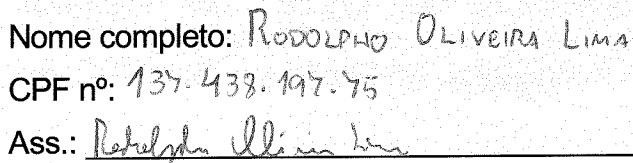 Nome completo: RODOLPHO OLIVEIRA LIMA
CPF nº: 137.438.197.75
Ass.: Rodolpho Oliveira Lima